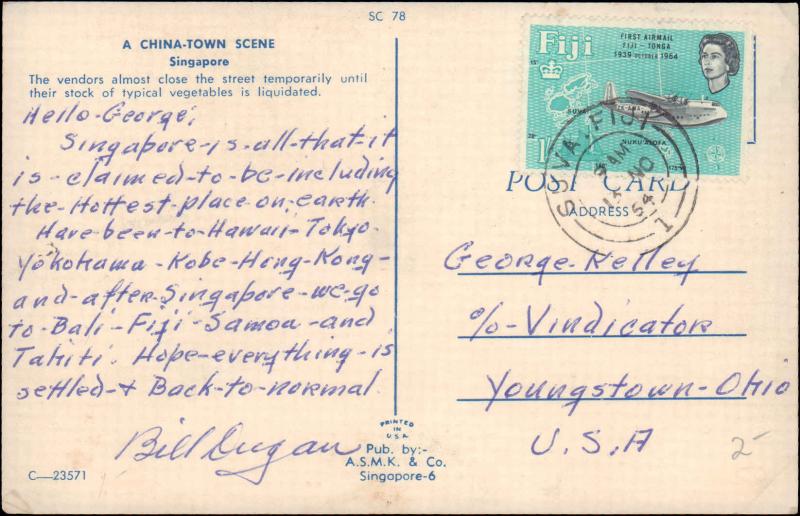 SC 78
A CHINA-TOWN SCENE
Singapore
The vendors almost close the street temporarily until
their stock of typical vegetables is liquidated.
Hello-George,
Singapore-is-all-that-it
is-claimed-to-be-including
the-Hottest-place-on-earth.
Have-been-to-Hawaii-Tokyo-
Yokohama-Kobe-Hong-Kong-
and-after-Singapore-we-go
to-Bali-Fiji-Samoa-and
Tahiti. Hope-everything-is
settled-+ Back-to-normal.
Bill Dugan
C—23571
PRINTED
IN
U.S.A.
Pub. by:-
A.S.M.K. & Co.
Singapore-6
Fiji
FIRST AIRMAIL
FIJI - TONGA
1939 OCTOBER 1964
SUVA
NUKU'ALOFA
1/-
SUVA, FIJI
AM
NO
64
1
POST CARD
ADDRESS
George-Kelley
%-Vindicator
Youngstown-Ohio
U.S.A
2-